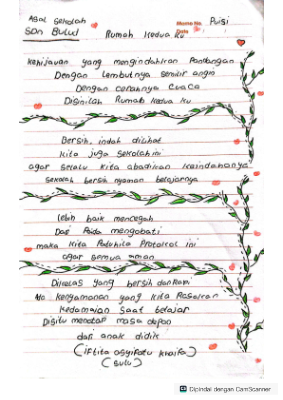 Asal Sekolah
SDN Bulul
Memo No.
Date
Puisi
Rumah kedua ku
Kehijauan yang mengindahkan Pandangan
Dengan Lembutnya semilir angin
Dengan cerahnya Cuaca
Disinilah Rumah kedua ku
Bersih, indah dilihat
Kita jaga sekolah ini
agar selalu kita abadikan keindahannya
sekolah bersih nyaman belajarnya
Lebih baik mencegah
Dari Pada mengobati
maka kita Patuhila Protokol ini
agar semua aman
Dikelas yang bersih dan
kenyamanan yang kita Rasakan
Kedamaian saat belajar
Disitu menatap masa depan
dari anak didik
(Iftita
(Bulu)
Dipindai dengan CamScanner